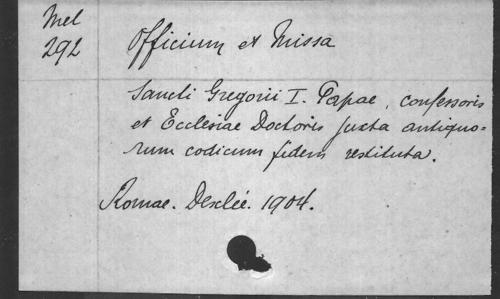 Mel
292
Officium et Missa
Sancti Gregorii I. Papae, confessoris
et Ecclesiae Doctoris juxta antiquo=
rum codicum fidem restituta.
Romae. Desclée. 1904.